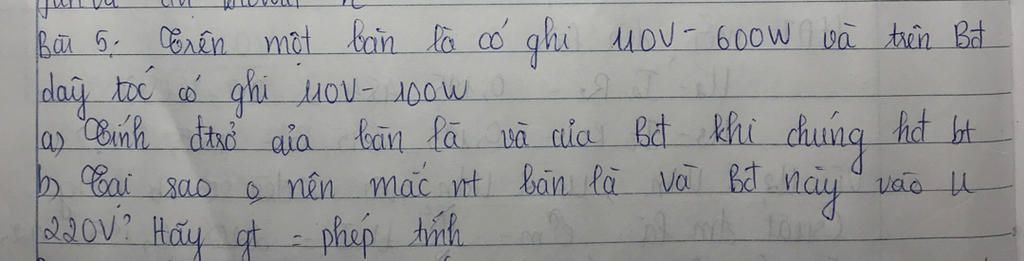 Bài 5: Trên một bàn là có ghi 110V - 600W và trên Bđ
dây tóc có ghi 110V - 100W
a) Tính đtrở của bàn là và của Bđ khi chúng hđ bt
b) Tại sao o nên mắc nt bàn là và Bđ này vào U
220V? Hãy gt = phép tính